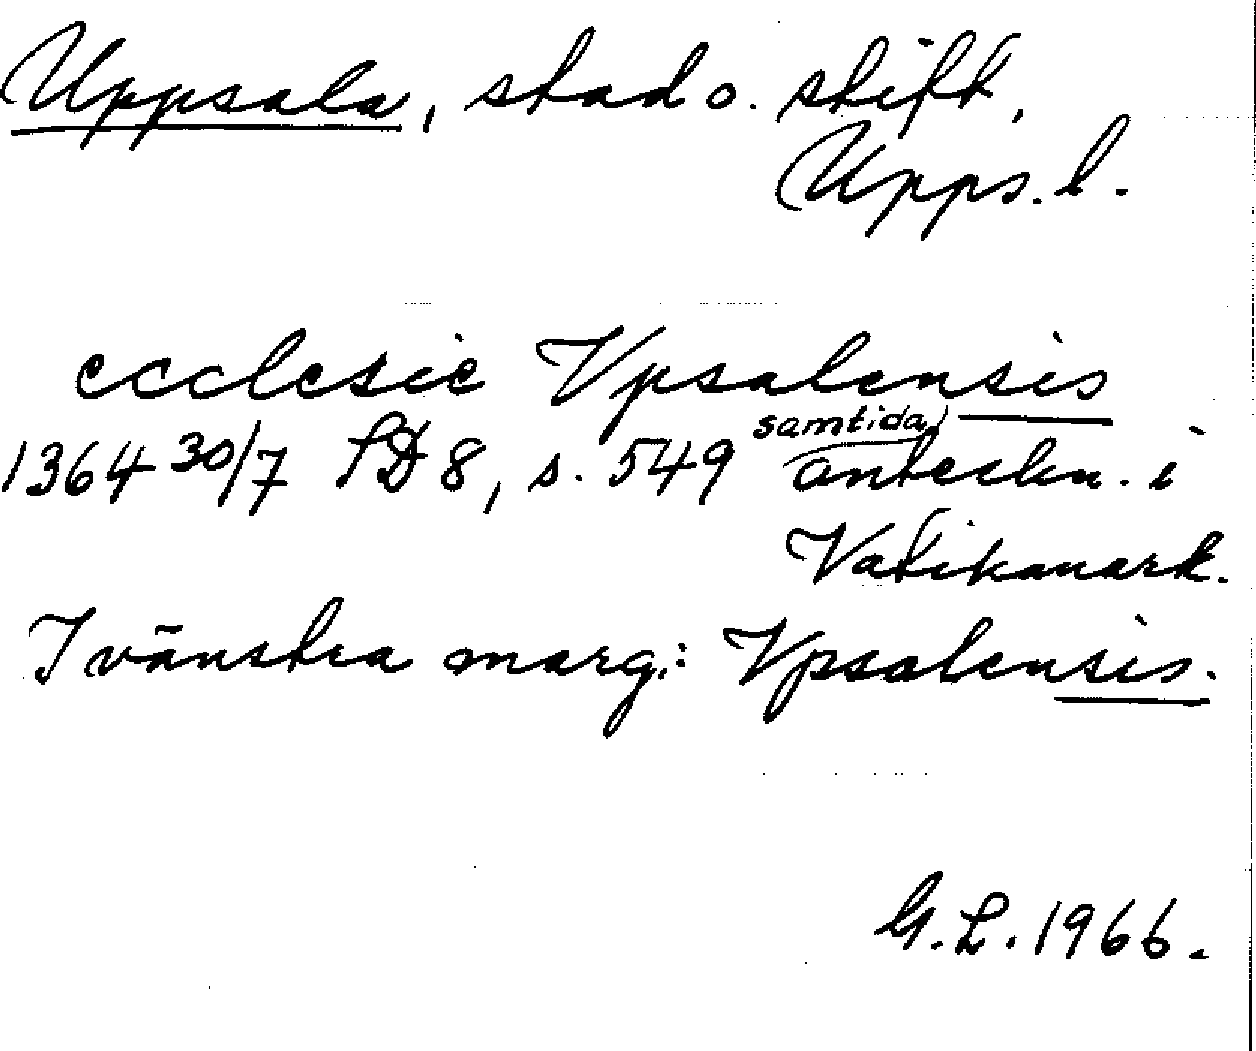 Uppsala, stad o. stift,
Upps. l.
ecclesie Vpsalensis
1364 30/7 SD 8, s. 549 samtida anteckn. i
Vatikanark.
I vänstra marg.: Vpsalensis.
G.L. 1966.